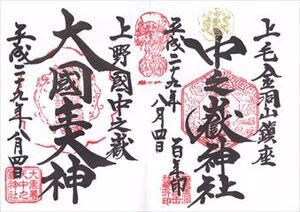 上毛金洞山鎮座
中之嶽神社
平成二十九年八月四日
上野國中之嶽
大國主大神
平成二十九年八月四日